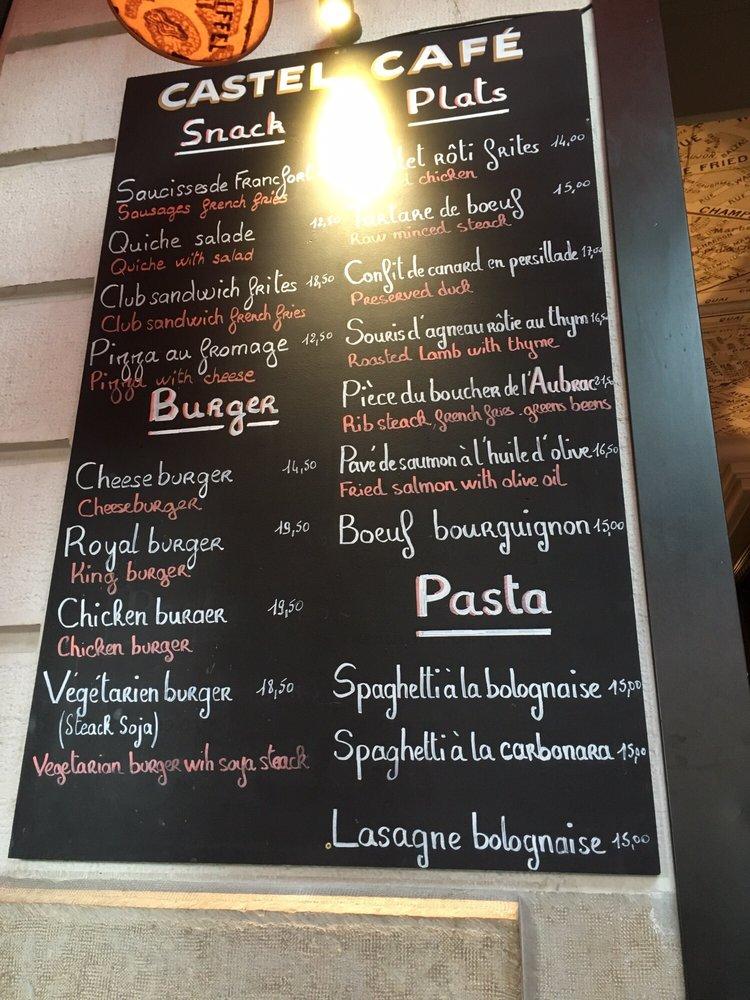 EIFFEL
CASTEL CAFÉ
Snack
Saucisses de Francfort
Sausages french fries
Quiche salade 12,50
Quiche with salad
Club sandwich frites 18,50
Club sandwich french fries
Pizza au fromage 12,50
Pizza with cheese
Burger
Cheeseburger 14,50
Cheeseburger
Royal burger 19,50
King burger
Chicken burger 19,50
Chicken burger
Végétarien burger 18,50
(Steack Soja)
Vegetarian burger wih soya steack
Plats
rôti frites 14,00
chicken
Tartare de boeuf 15,00
Raw minced steack
Confit de canard en persillade 17,00
Preserved duck
Souris d'agneau rôtie au thym 16,50
Roasted Lamb with thyme
Pièce du boucher de l'Aubrac 21,50
Rib steack, french fries . greens beens
Pavé de saumon à l'huile d'olive 16,50
Fried salmon with olive oil
Boeuf bourguignon 15,00
Pasta
Spaghetti à la bolognaise 15,00
Spaghetti à la carbonara 15,00
Lasagne bolognaise 15,00
RUE
FRIED
CHAM